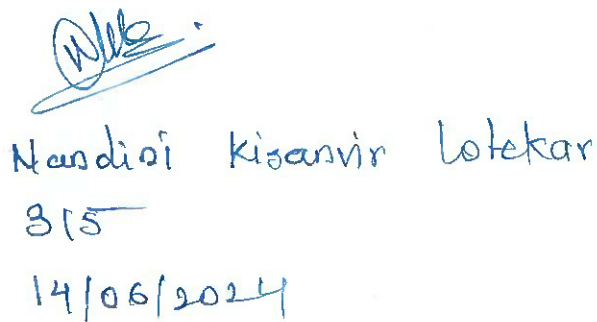 Nandini Kisanvir Lotekar
315
14/06/2024